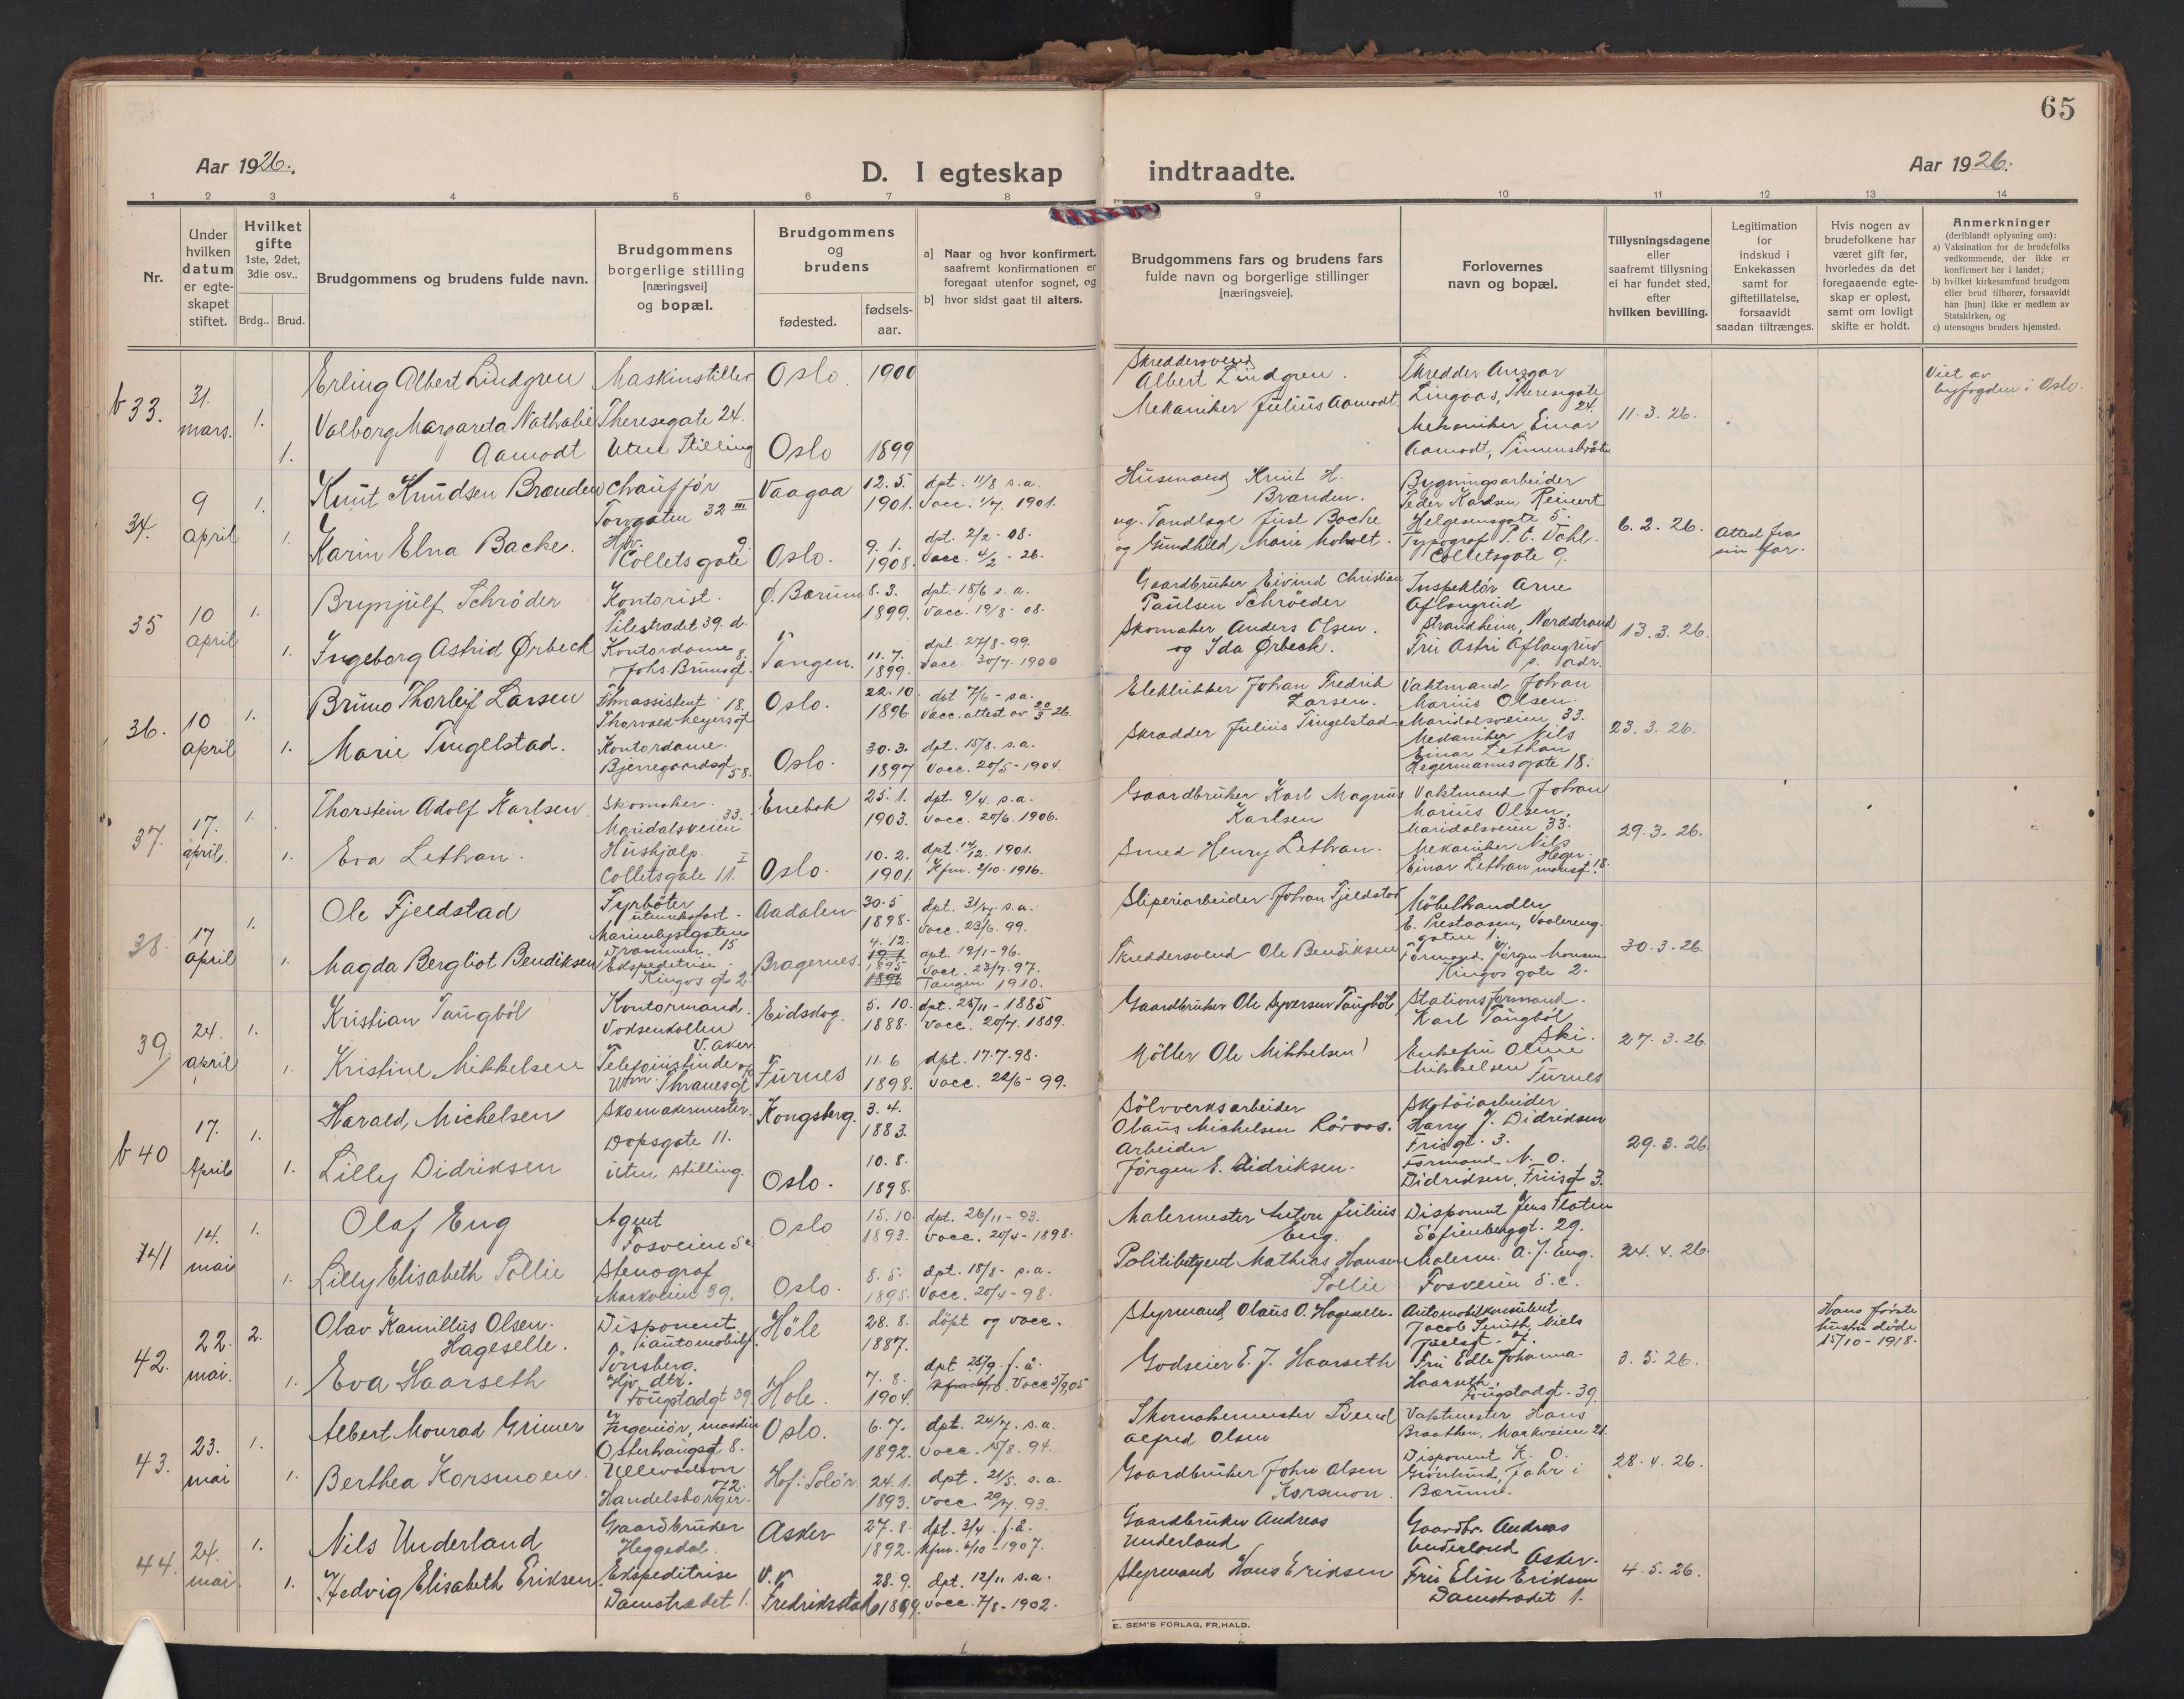 65
Aar 1926.
D. I egteskap indtraadte.
Aar 1926.
1 2 3 4 5 6 7 8 9 10 11 12 13 14
Nr.
Under hvilken datum er egte-skapet stiftet.
Hvilket gifte 1ste, 2det, 3die osv..
Brdg.. Brud.
Brudgommens og brudens fulde navn.
Brudgommens borgerlige stilling [næringsvei] og bopæl.
Brudgommens og brudens
fødested.
fødsels-aar.
a] Naar og hvor konfirmert, saafremt konfirmationen er foregaat utenfor sognet, og
b] hvor sidst gaat til alters.
Brudgommens fars og brudens fars fulde navn og borgerlige stillinger [næringsveie].
Forlovernes navn og bopæl.
Tillysningsdagene eller saafremt tillysning ei har fundet sted, efter hvilken bevilling.
Legitimation for indskud i Enkekassen samt for giftetillatelse, forsaavidt saadan tiltrænges.
Hvis nogen av brudefolkene har været gift før, hvorledes da det foregaaende egte-skap er opløst, samt om lovligt skifte er holdt.
Anmerkninger (deriblandt oplysning om):
a) Vaksination for de brudefolks vedkommende, der ikke er konfirmert her i landet;
b) hvilket kirkesamfund brudgom eller brud tilhører, forsaavidt han [hun] ikke er medlem av Statskirken, og
c) utensogns bruders hjemsted.
33. 31. mars. 1. Erling Albert Lindgren Maskinstiller Oslo. 1900
Skreddersvend Albert Lindgren. Skredder Ansgar Lingaas, Theresegate 24.
Viet av byfogden i Oslo.
1. Valborg Margareta Nathalie Aamodt Theresegate 24. Uten Stilling Oslo 1899
Mekaniker Julius Aamodt. Mekaniker Einar Aamodt, Simensbråten 11.3.26.
34. 9 april 1. Knut Knudsen Brænden Chauffør Torvgaten 32 III Vaagaa 12.5. 1901. dpt. 11/8 s.a. Vacc. 1/7. 1901.
Husmand Knut H. Branden. Bygningsarbeider Peder Karlsen Reinert Helgesensgate 5.
1. Karin Elna Backe. Hjv. Colletsgate 9. Oslo. 9.1. 1908. dpt. 2/2-08. Vacc. 4/2-26.
ug. Tandlæge Just Backe og Gundhild Marie Moholt. Typograf P. C. Dahl. Colletsgate 9. 6.2.26. Attest fra sin far.
35 10 april 1. Brynjulf Schröder Kontorist. Pilestrædet 39. d. Ø. Bærum 8.3. 1899. dpt. 18/6 s.a. Vacc. 19/8-08.
Gaardbruker Eivind Christian Paulsen Schröeder Inspektör Arne Aflangrud Strandheim, Nordstrand
1. Ingeborg Astrid Ørbeck Kontordame Johs. Brunsgt. 8. Tangen. 11.7. 1899. dpt. 27/8-99. Vacc. 30/7.1900
Skomaker Anders Olsen. og Ida Ørbeck. Fru Astri Aflangrud s. adr. 13.3.26.
36. 10 april 1. Bruno Thorleif Larsen Thorvald Meyersgt 18. Oslo. 22.10. 1896 dpt 7/6-s.a. Vacc. attest av 20/3 26.
Elektriker Johan Fredrik Larsen. Vaktmand Johan Marius Olsen. Maridalsveien 33.
1. Marie Tingelstad. Kontordame. Bjerregaardsgt 58. Oslo. 30.3. 1897 dpt. 15/8. s.a. Vacc. 20/5-1904.
Skrædder Julius Tingelstad Mekaniker Nils Einar Lethan Hegermannsgate 18. 23.3.26.
37. 17. april. 1. Thorstein Adolf Karlsen Skomaker. Maridalsveien 33. Enebak 25.1. 1903. dpt. 9/4. s.a. Vacc. 20/6. 1906.
Gaardbruker Karl Magnus Karlsen Vaktmand Johan Marius Olsen, Maridalsveien 33.
1. Eva Lethan. Hushjælp. Colletsgate 11. I Oslo. 10.2. 1901 dpt. 14/12. 1901. Kfm. 2/10.1916.
Smed Henry Lethan. Mekaniker Nils Einar Lethan Hegermannsgt. 18. 29.3.26.
38. 17 april 1. Ole Fjeldstad Fyrböter utenriksfart. Marienlystgaten 15 Drammen. Aadalen 30.5 1898. dpt. 31/7. s.a. Vacc. 23/6.99.
Sliperiarbeider Johan Fjeldstad Möbelhandler E. Prestaasen, Vaalereng-gaten 1.
1. Magda Bergliot Bendiksen Ekspeditrise. Kingos gt 2. Bragernes. 4.12. 1895 dpt. 19/1-96. Vacc. 23/7.97. Tangen 1910.
Skreddersvend Ole Bendiksen Formand Jörgen Monsen Kingos gate 2. 30.3.26.
39 24. april 1. Kristian Taugböl Kontormand. Voksenkollen V. Aker Eidskog. 5.10. 1888. dpt. 25/11-1885 Vacc. 20/7. 1889.
Gaardbruker Ole Syversen Taugböl Stationsformand. Karl Taugböl Ski.
1. Kristine Mikkelsen Telefonistinde Thranesgt Furnes 11.6 1898. dpt. 17.7.98. Vacc. 22/6-99.
Möller Ole Mikkelsen Enkefru Oline Mikkelsen Furnes 27.3.26
40 17. April 1. Harald Michelsen Skomakermester. Dopsgate 11. Kongsberg. 3.4. 1883.
Sölvverksarbeider Olaus Michelsen Röraas. Skotöiarbeider Harry J. Didriksen Friisgt. 3.
1. Lilly Didriksen uten stilling. Oslo. 10.8. 1898.
Arbeider Jörgen E. Didriksen. Formand N. O. Didriksen, Friisgt 3. 29.3.26.
41 14. mai 1. Olaf Eng Agent Fosveien 5c Oslo 15.10. 1893. dpt. 26/11-93. Vacc. 20/4-1898.
Malermester Anton Julius Eng. Disponent Jens Floten Sofienberggt. 29.
1. Lilly Elisabeth Sollie Stenograf Markveien 39. Oslo. 8.5. 1895. dpt. 18/8-s.a. Vacc. 20/4-98.
Politibetjent Mathias Hansen Sollie Malerm. A. J. Eng. Fosveien 5.c. 24.4.26.
42. 22. mai. 2. Olav Kamillus Olsen Hageselle. Disponent i automobilf. Tönsberg. Höle 28.8. 1887. döpt og vacc.
Styrmand Olaus O. Hageselle. Automobilkonsulent Jacob Smith, Niels Juelsgt. 7. Hans første hustru døde 15/10-1918.
1. Eva Haarseth Hjv. dtr. Fougstadgt 39. Hole. 7.8. 1904. dpt 25/9. f.å. Vacc 5/9.05
Godseier E. J. Haarseth Fru Edle Johanna Haarseth, Fougstadgt. 39. 3.5.26.
43. 23. mai 1. Albert Monrad Grimer Ingeniör, maskin Østerhausgt 8. Oslo. 6.7. 1892. dpt. 24/7. s.a. Vacc. 15/8.94.
Skomakermester Svend Alfred Olsen Vaktmester Hans Braathen, Markveien 21.
1. Berthea Korsmoen. Ullevaalsvn 72. Handelsborger. Hof: Solör. 24.1. 1893. dpt. 21/5. s.a. Vacc. 29/7. 93.
Gaardbruker John Olsen Korsmon. Disponent K. O. Grönlund, Jahr i Bærum. 28.4.26.
44. 24. mai 1. Nils Underland Gaardbruker Heggedal. Asker 27.8. 1892. dpt. 3/4. f.å. Kfm. 6/10-1907.
Gaardbruker Andreas Underland Gaardbr. Andreas Underland Asker.
1. Hedvig Elisabeth Eriksen. Ekspeditrise Damstrædet 1. V.V Fredriksstad 28.9. 1899. dpt. 12/11 s.a. Vacc. 7/8-1902.
Styrmand Hans Eriksen Fru Elise Eriksen Damstrædet 1. 4.5.26.
E. SEM'S FORLAG, FR.HALD.